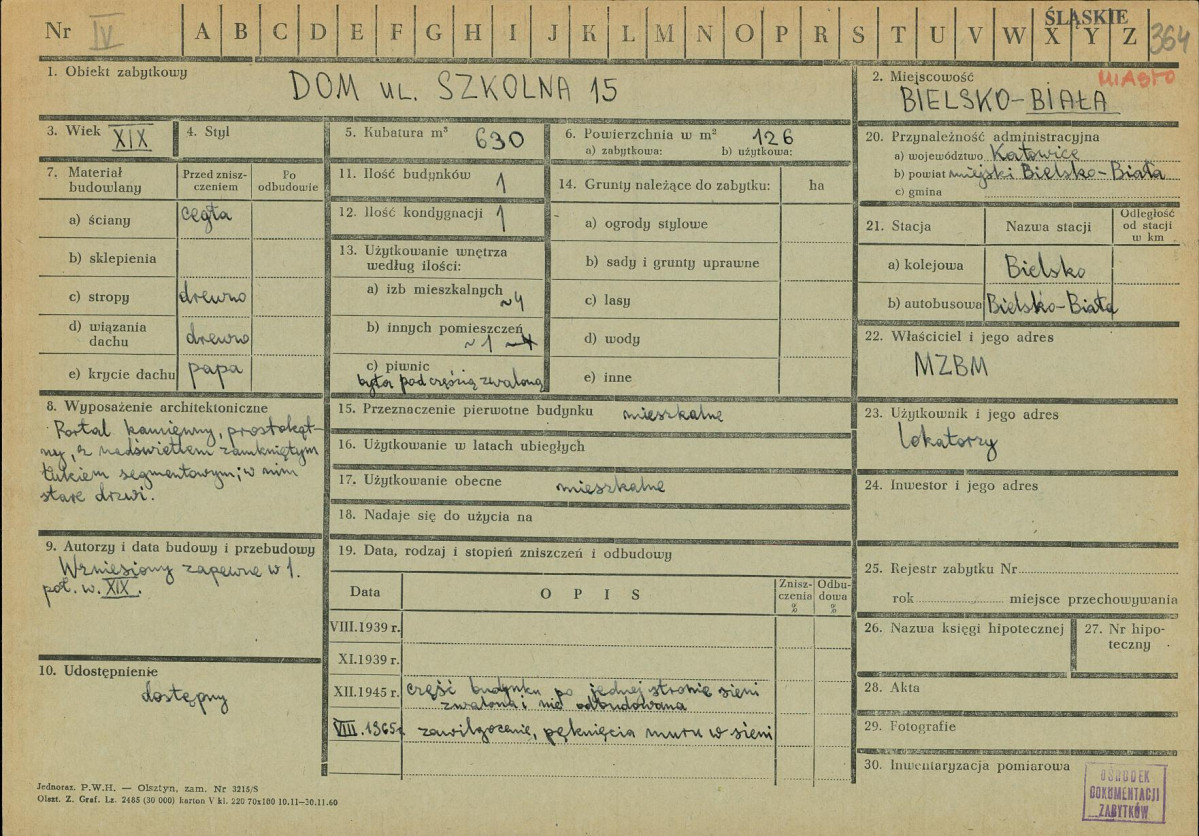 Nr IV A B C D E F G H I J K L M N O P R S T U V W X Y Z ŚLĄSKIE 364
1. Obiekt zabytkowy
DOM UL. SZKOLNA 15
2. Miejscowość MIASTO
BIELSKO-BIAŁA
3. Wiek XIX
4. Styl
5. Kubatura m³ 630
6. Powierzchnia w m² 126
a) zabytkowa: b) użytkowa:
7. Materiał budowlany
Przed zniszczeniem
Po odbudowie
a) ściany cegła
b) sklepienia
c) stropy drewno
d) wiązania dachu drewno
e) krycie dachu papa
8. Wyposażenie architektoniczne
Portal kamienny, prostokąt-
ny, z nadświetlem zamkniętym
łukiem segmentowym; w nim
stare drzwi.
9. Autorzy i data budowy i przebudowy
Wzniesiony zapewne w 1.
poł. w. XIX.
10. Udostępnienie
dostępny
11. Ilość budynków 1
12. Ilość kondygnacji 1
13. Użytkowanie wnętrza
według ilości:
a) izb mieszkalnych ~4
b) innych pomieszczeń
~1
c) piwnic
była pod częścią zwaloną
14. Grunty należące do zabytku: ha
a) ogrody stylowe
b) sady i grunty uprawne
c) lasy
d) wody
e) inne
15. Przeznaczenie pierwotne budynku mieszkalne
16. Użytkowanie w latach ubiegłych
17. Użytkowanie obecne mieszkalne
18. Nadaje się do użycia na
19. Data, rodzaj i stopień zniszczeń i odbudowy
Data O P I S Zniszczenia % Odbudowa %
VIII.1939 r.
XI.1939 r.
XII.1945 r. część budynku po jednej stronie sieni
zwalona i nie odbudowana
VIII.1965 r. zawilgocenie, pęknięcia muru w sieni
20. Przynależność administracyjna
a) województwo Katowice
b) powiat miejski Bielsko-Biała
c) gmina
21. Stacja Nazwa stacji Odległość od stacji w km
a) kolejowa Bielsko
b) autobusowa Bielsko-Biała
22. Właściciel i jego adres
MZBM
23. Użytkownik i jego adres
lokatorzy
24. Inwestor i jego adres
25. Rejestr zabytku Nr
rok miejsce przechowywania
26. Nazwa księgi hipotecznej
27. Nr hipo-
teczny
28. Akta
29. Fotografie
30. Inwentaryzacja pomiarowa
OŚRODEK
DOKUMENTACJI
ZABYTKÓW
Jednoraz. P.W.H. — Olsztyn, zam. Nr 3215/S
Olszt. Z. Graf. Lz. 2485 (30 000) karton V kl. 220 70x100 10.11—30.11.60